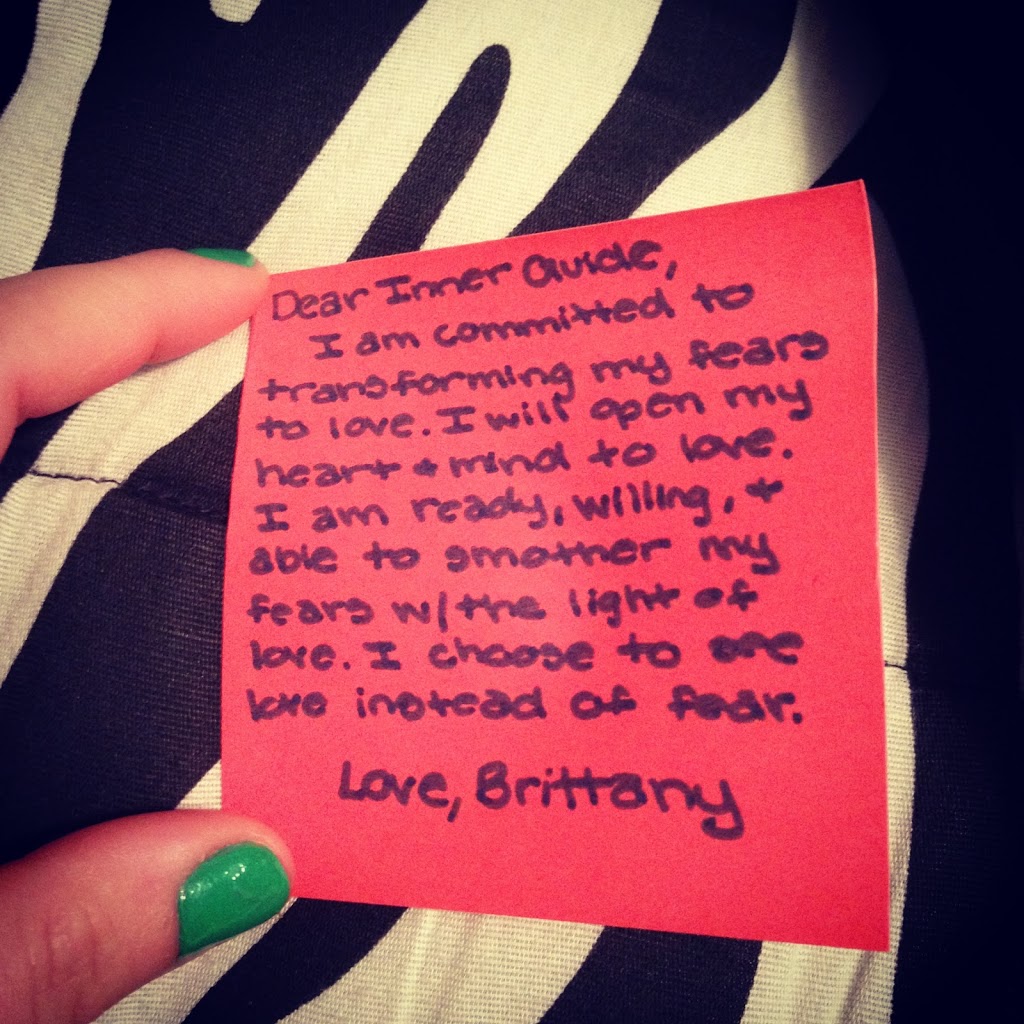 Dear Inner Guide,
I am committed to
transforming my fears
to love. I will open my
heart + mind to love.
I am ready, willing, +
able to smother my
fears w/ the light of
love. I choose to see
love instead of fear.
Love, Brittany